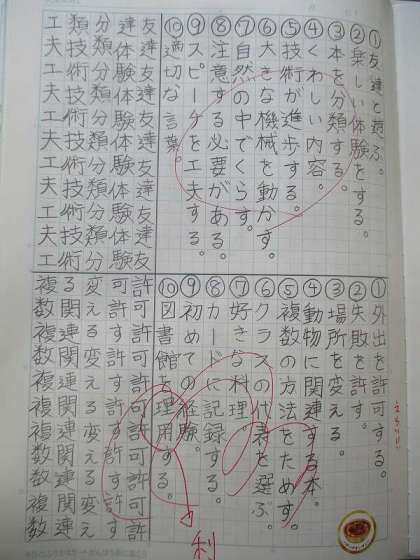 ①友達と遊ぶ。
②楽しい体験をする。
③本を分類する。
④くわしい内容。
⑤技術が進歩する。
⑥大きな機械を動かす。
⑦自然の中でくらす。
⑧注意する必要がある。
⑨スピーチを工夫する。
⑩適切な言葉。
友達友達友達友達友達友
達体験体験体験体験体験
分類分類分類分類分類分
類技術技術技術技術技術
工夫工夫工夫工夫工夫工
①外出を許可する。
②失敗を許す。
③場所を変える。
④動物に関連する本。
⑤複数の方法をためす。
⑥クラスの代表を選ぶ。
⑦好きな料理。
⑧カードに記録する。
⑨初めての経験。
⑩図書館を理用する。
利
許可許可許可許可許可許
可許す許す許す許す許す
変える変える変える変え
る関連関連関連関連関連